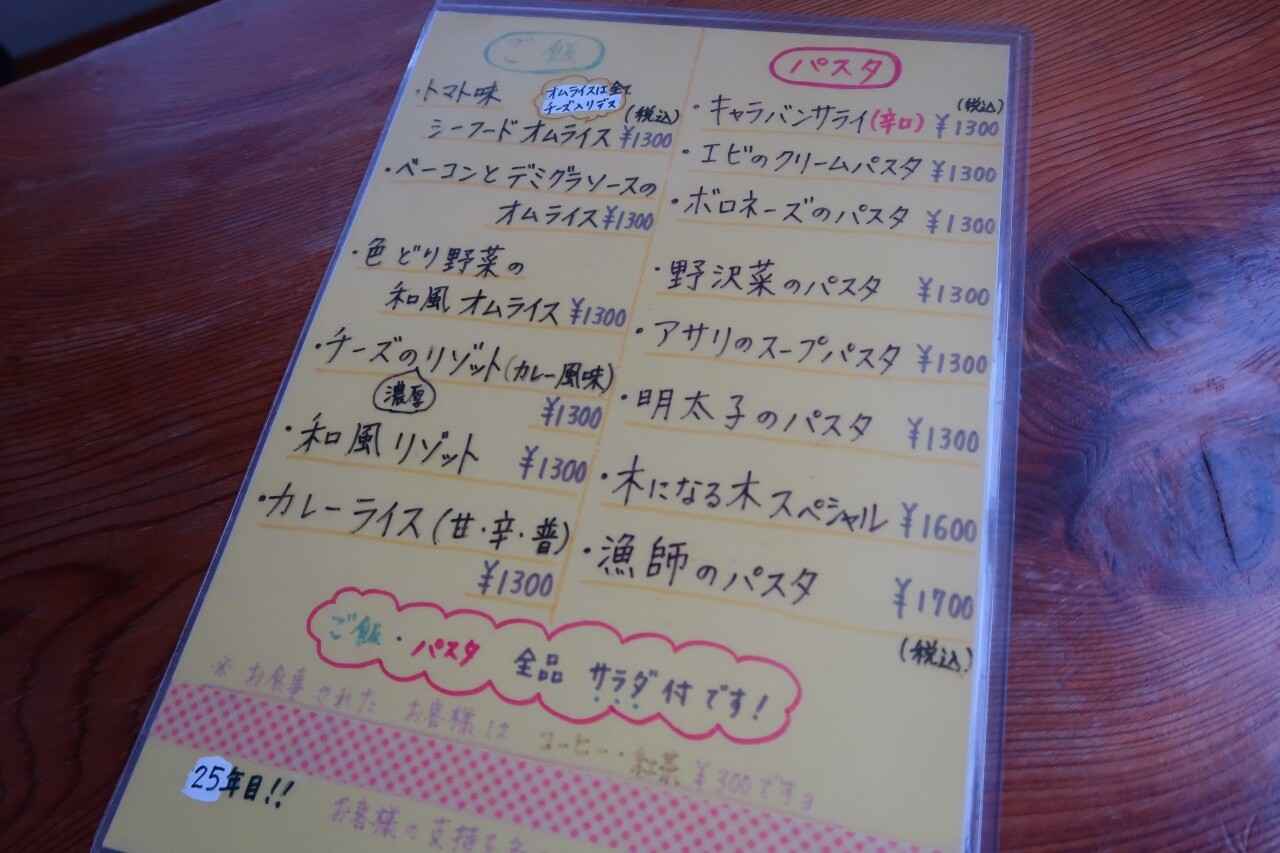 ご飯
・トマト味
オムライスは全て
チーズ入りデス
(税込)
シーフードオムライス ¥1300
・ベーコンとデミグラソースの
オムライス ¥1300
・色どり野菜の
和風オムライス ¥1300
・チーズのリゾット(カレー風味)
濃厚
¥1300
・和風リゾット ¥1300
・カレーライス(甘・辛・普)
¥1300
パスタ
(税込)
・キャラバンサライ(辛口) ¥1300
・エビのクリームパスタ ¥1300
・ボロネーズのパスタ ¥1300
・野沢菜のパスタ ¥1300
・アサリのスープパスタ ¥1300
・明太子のパスタ ¥1300
・木になる木スペシャル ¥1600
・漁師のパスタ ¥1700
(税込)
ご飯・パスタ 全品 サラダ付です!
※お食事された お客様は コーヒー・紅茶 ¥300です。
25年目!!
お客様の支持を